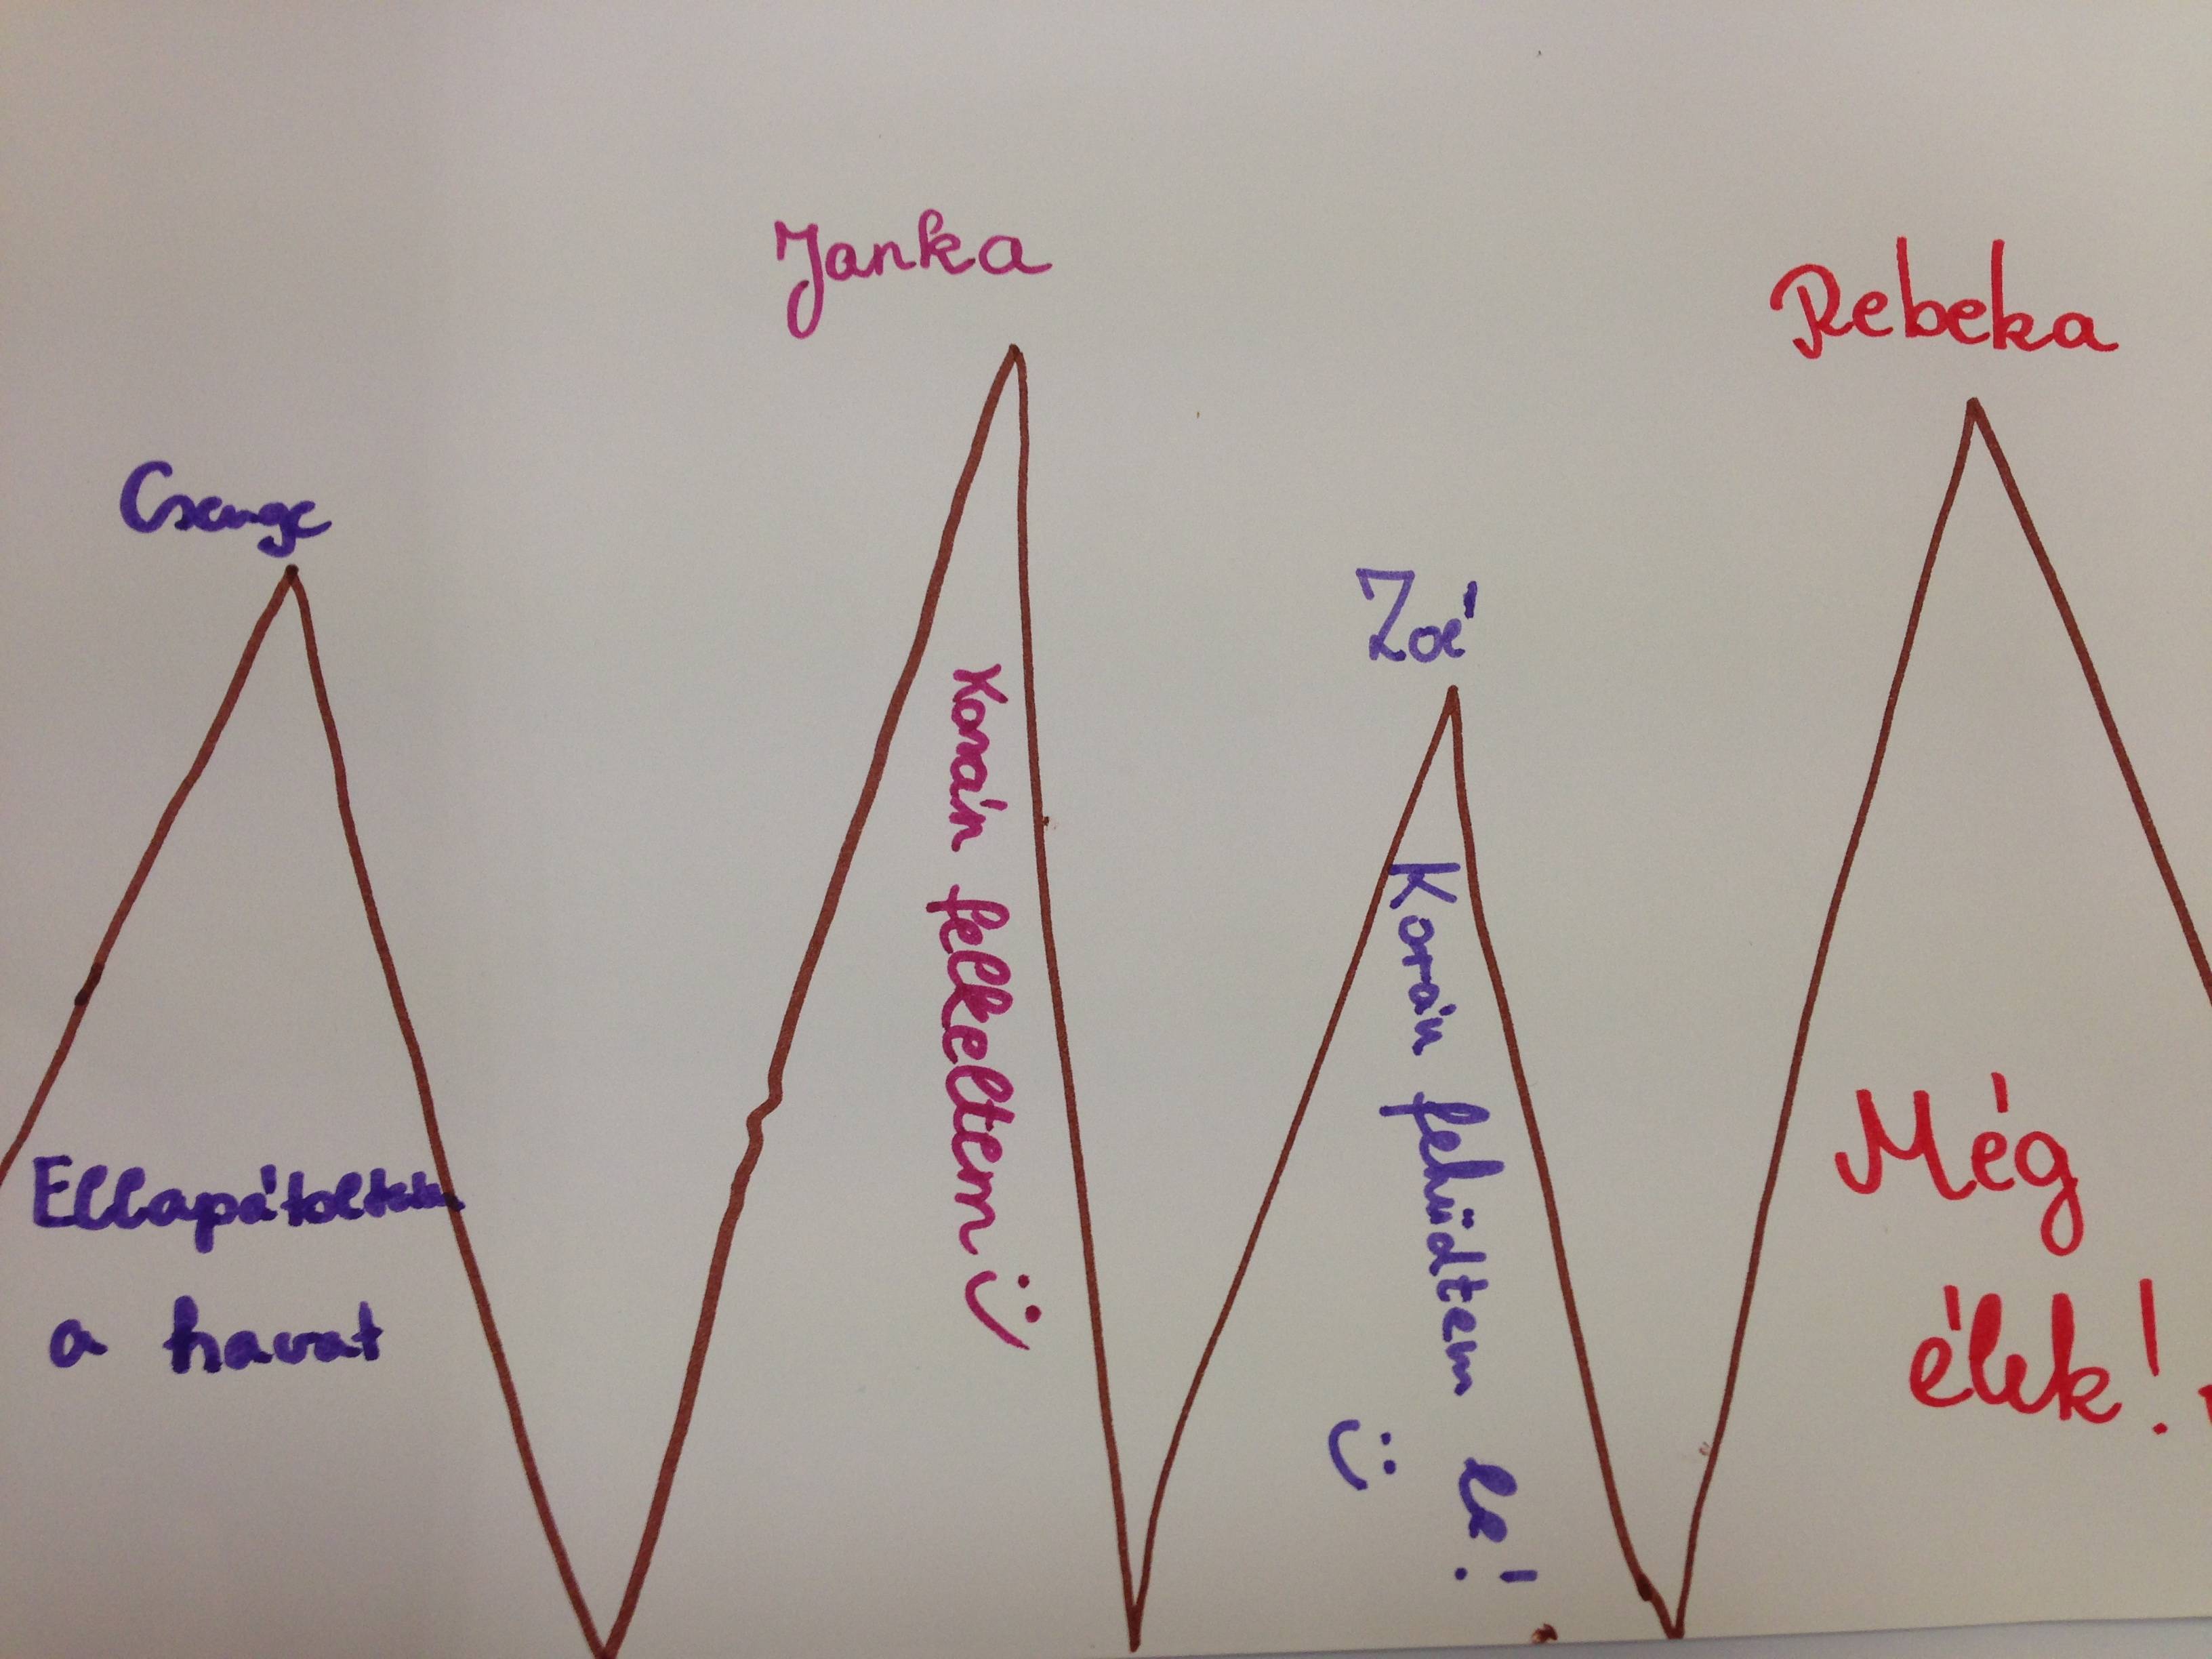 Csenge
Janka
Zoé
Rebeka
Ellapátoltam
a havat
Korán felkeltem :)
Korán feküdtem le!
:)
Még
élek!